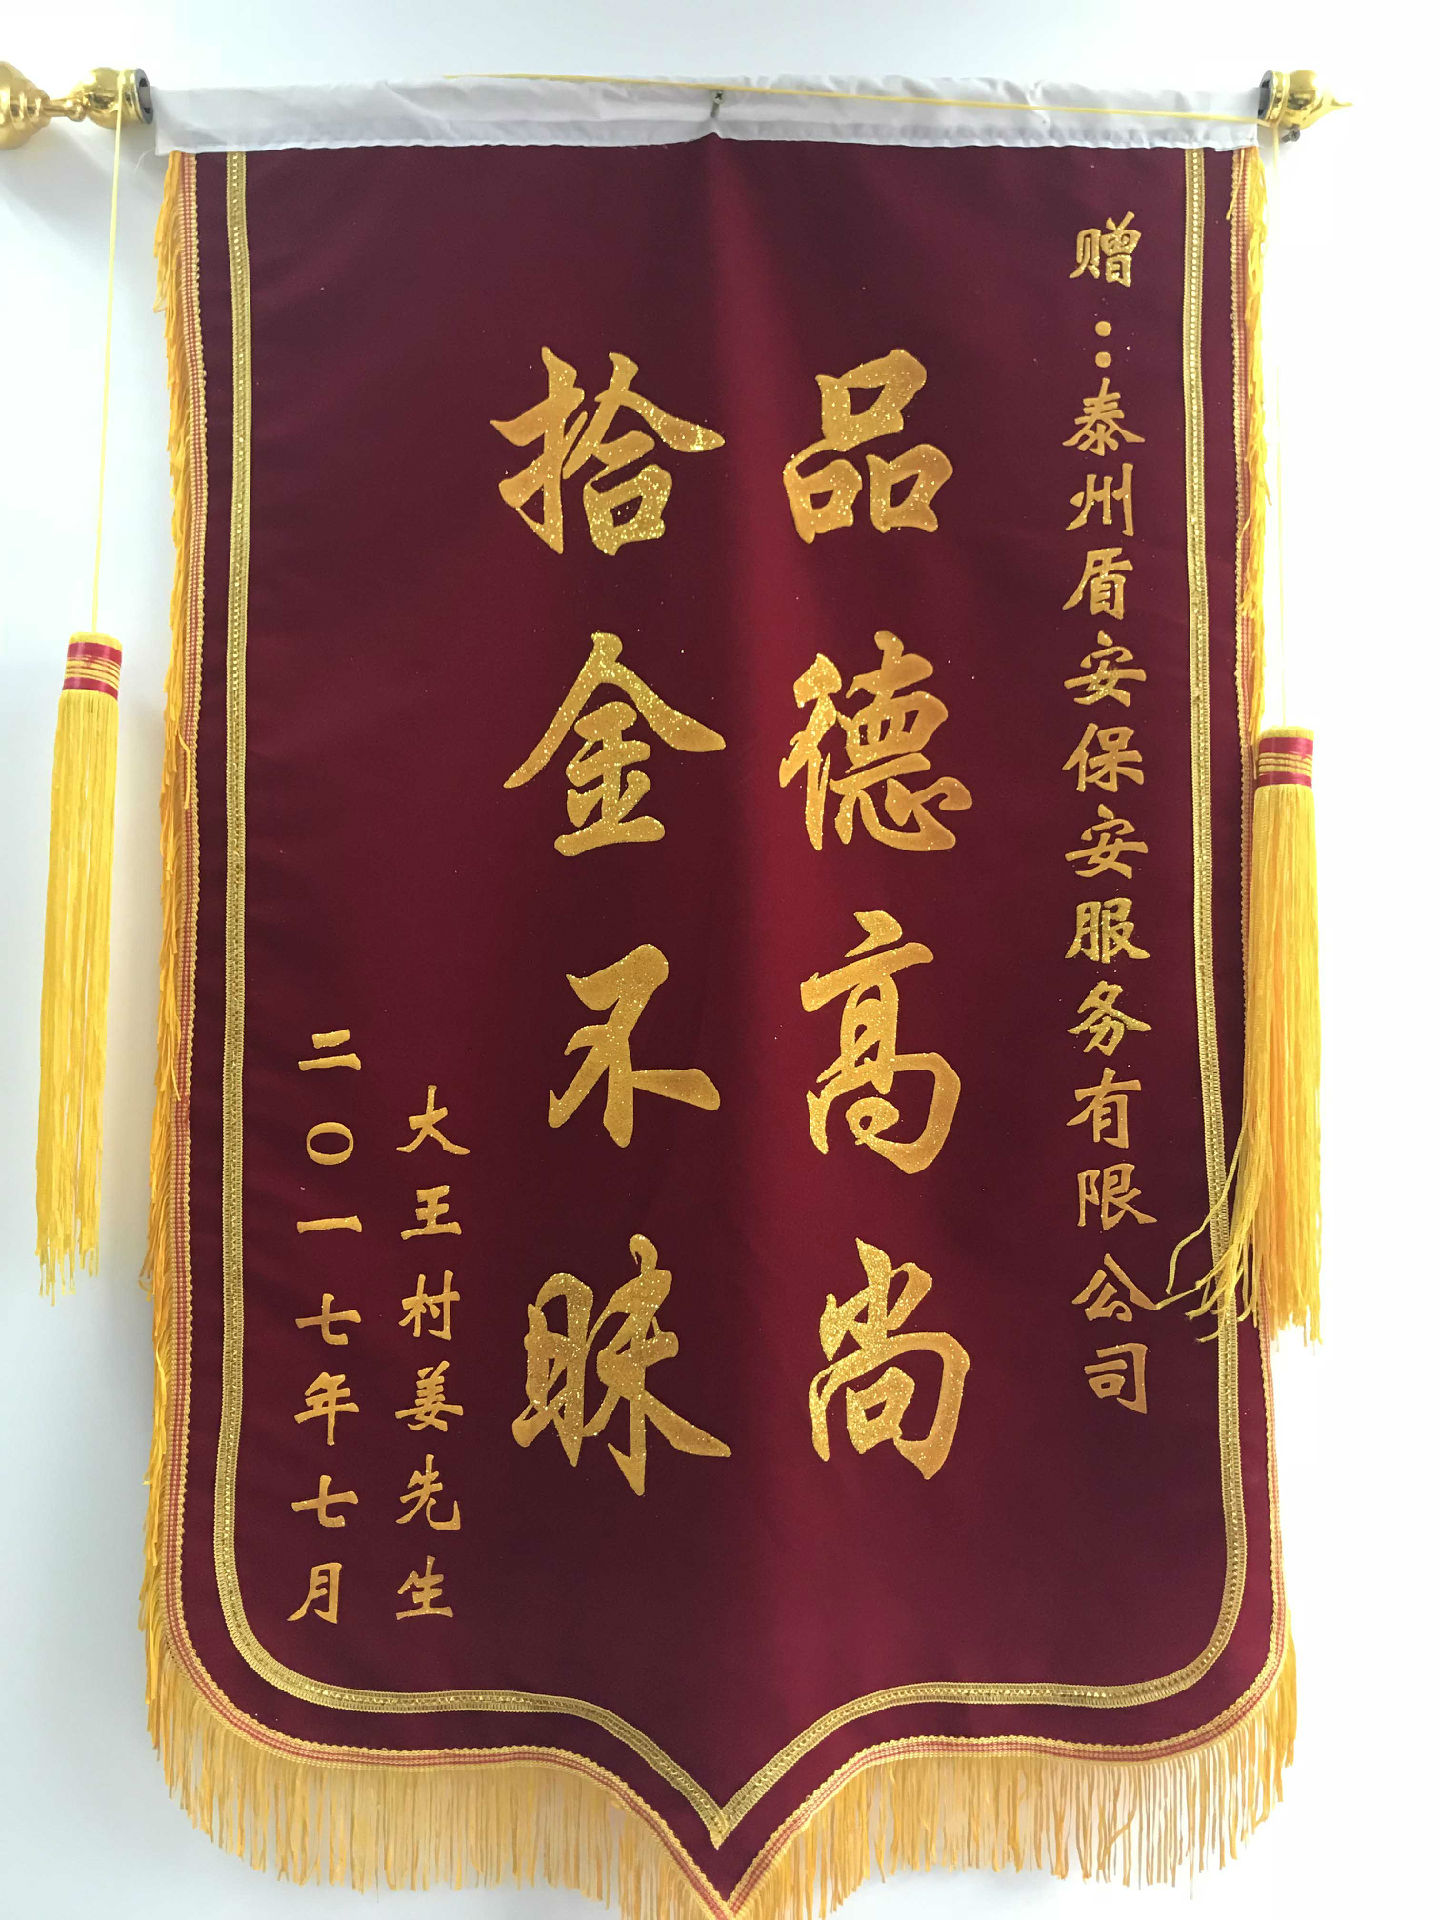 赠:泰州盾安保安服务有限公司
品德高尚
拾金不昧
大王村姜先生
二〇一七年七月